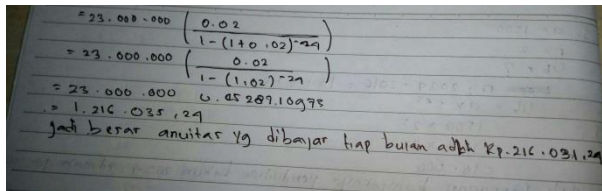 = 23.000.000 ( 0.02 / 1-(1+0,02)^-24 )
= 23.000.000 ( 0.02 / 1-(1,02)^-24 )
= 23.000.000 0.05287.10975
= 1.216.035,24
Jadi besar anuitas yg dibayar tiap bulan adlh Rp.216.031,24